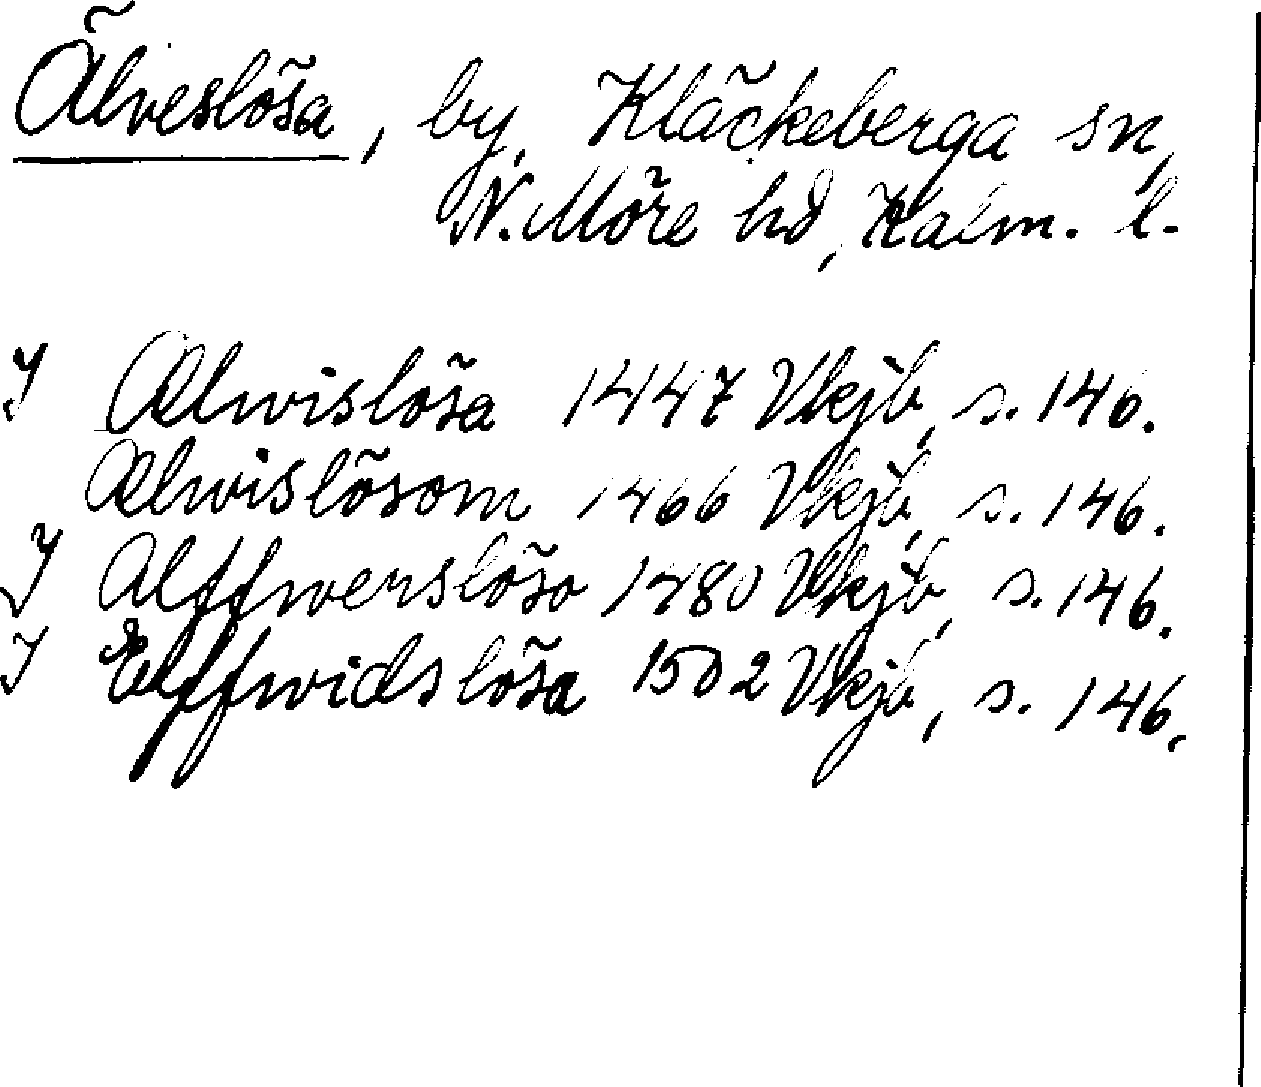 Älveslösa, by, Kläckeberga sn,
N. Möre hd, Kalm. l.
I Ælwislösa 1447 Vkjb, s. 146.
Ælwislösom 1466 Vkjb, s. 146.
I Alffwerslöso 1480 Vkjb, s. 146.
I Elffwidslösa 1502 Vkjb, s. 146.